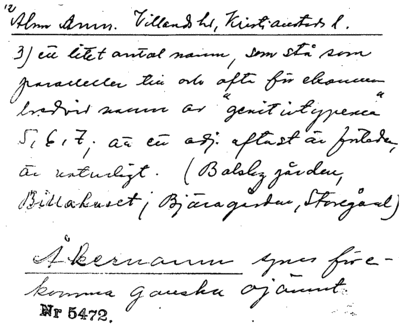 12
Alm. Anm. Villands hd, Kristianstads l.
3) ett litet antal namn, som stå som
paralleller till och ofta förekomma
bredvid namn av "genitivtyperna"
5, 6, 7; att en adj. oftast är förleden,
är naturligt. (Balsby gården,
Billahuset; Bjäragården, Storegård)
Åkernamn synes före-
komma ganska ojämnt.
Nr 5472.